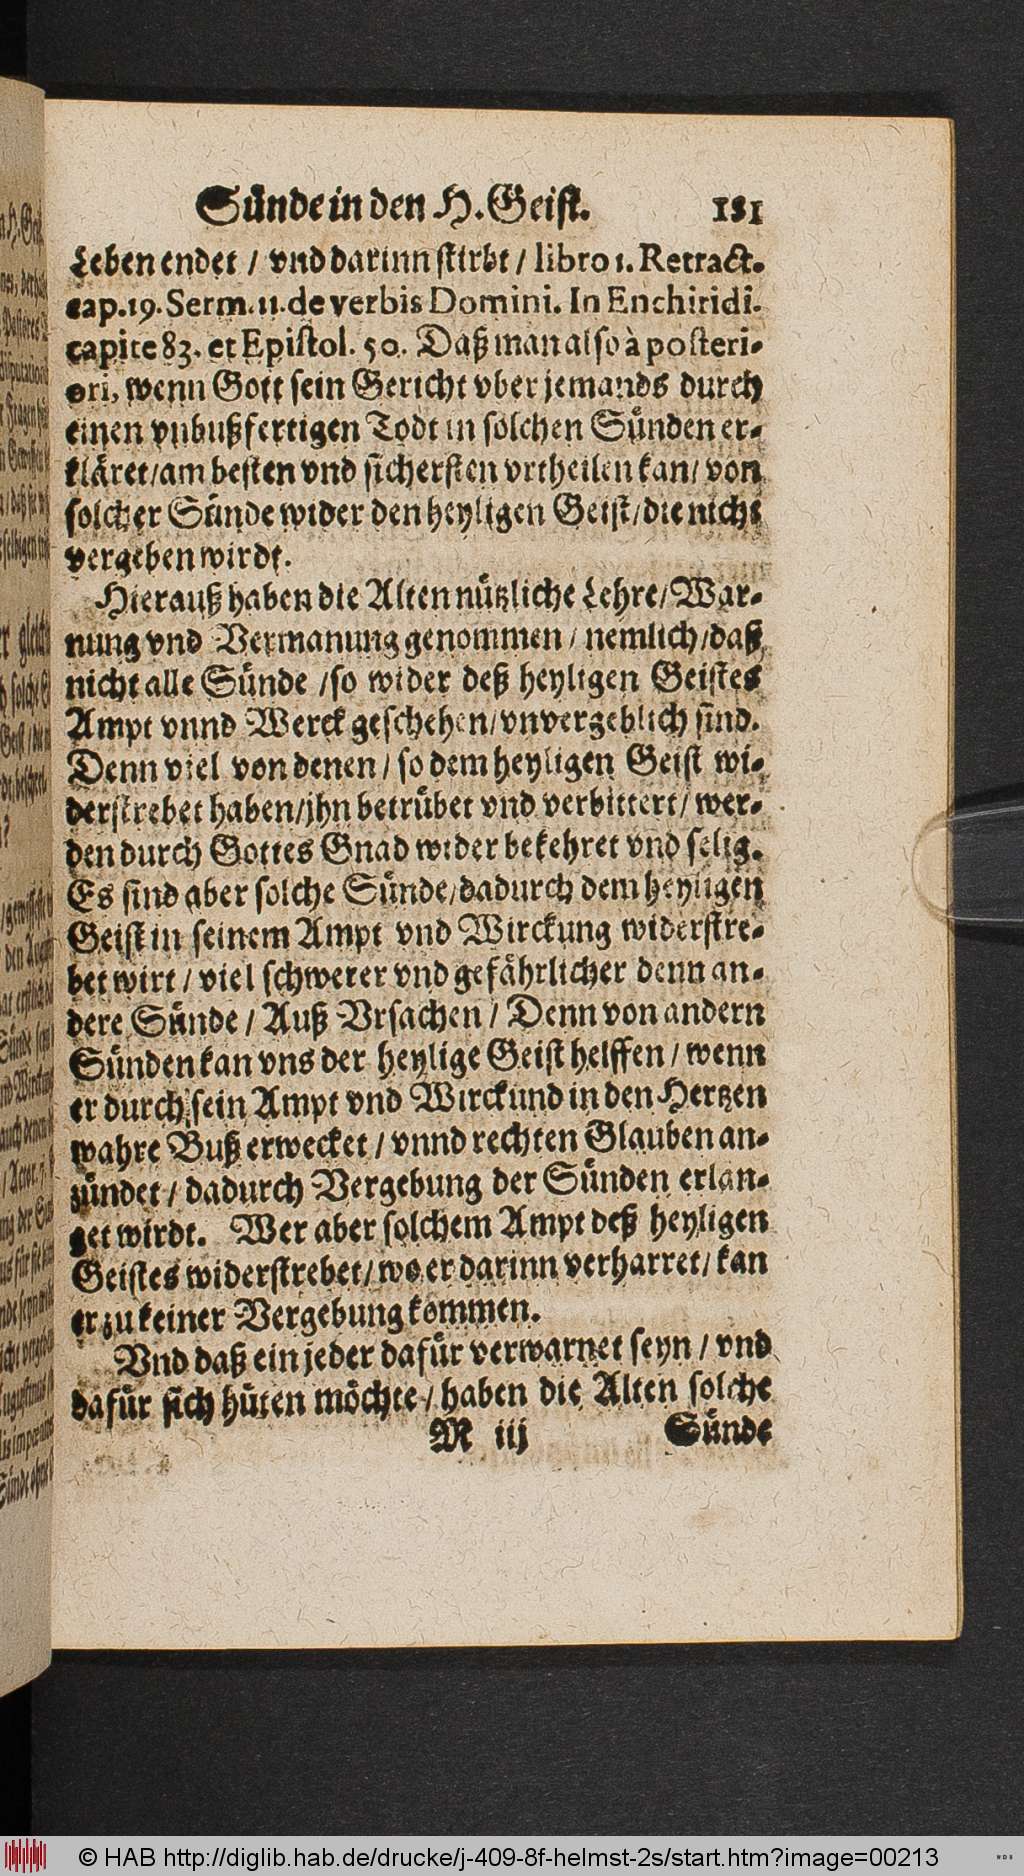 Sünde in den H. Geist. 181
Leben endet / vnd darinn stirbt / libro 1. Retract.
cap. 19. Serm. 11. de verbis Domini. In Enchiridi.
capite 83. et Epistol. 50. Daß man also à posteri-
ori, wenn Gott sein Gericht vber jemands durch
einen vnbußfertigen Todt in solchen Sünden er-
kläret / am besten vnd sichersten vrtheilen kan / von
solcher Sünde wider den heyligen Geist / die nicht
vergeben wirdt.
Hierauß haben die Alten nützliche Lehre / War-
nung vnd Vermanung genommen / nemlich / daß
nicht alle Sünde / so wider deß heyligen Geistes
Ampt vnnd Werck geschehen / vnvergeblich sind.
Denn viel von denen / so dem heyligen Geist wi-
derstrebet haben / jhn betrübet vnd verbittert / wer-
den durch Gottes Gnad wider bekehret vnd selig.
Es sind aber solche Sünde / dadurch dem heyligen
Geist in seinem Ampt vnd Wirckung widerstre-
bet wirt / viel schwerer vnd gefährlicher denn an-
dere Sünde / Auß Vrsachen / Denn von andern
Sünden kan vns der heylige Geist helffen / wenn
er durch sein Ampt vnd Wirckund in den Hertzen
wahre Buß erwecket / vnnd rechten Glauben an-
zündet / dadurch Vergebung der Sünden erlan-
get wirdt. Wer aber solchem Ampt deß heyligen
Geistes widerstrebet / wo er darinn verharret / kan
er zu keiner Vergebung kommen.
Vnd daß ein jeder dafür verwarnet seyn / vnd
dafür sich hüten möchte / haben die Alten solche
M iij Sünde
© HAB http://diglib.hab.de/drucke/j-409-8f-helmst-2s/start.htm?image=00213